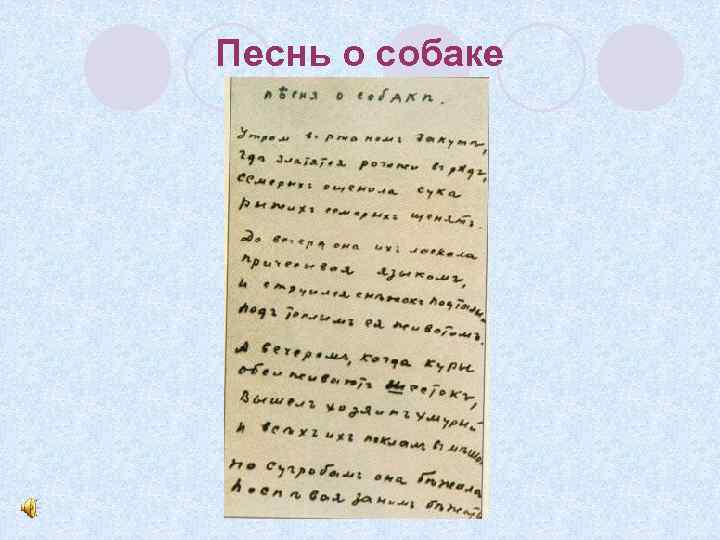 Песнь о собаке
Пѣсня о собакѣ.
Утром в ржаномъ закутѣ,
гдѣ златятся рогожи в рядъ,
семерихъ ощенила сука
рыжихъ семерыхъ щенятъ.
До вечера она ихъ ласкала
причесывая языкомъ,
и струился снѣжокъ подталый
подъ теплимъ ея животомъ.
А вечеромъ, когда куры
обсиживаютъ шестокъ,
Вышелъ хозяинъ хмурый
И всѣхъ ихъ поклалъ въ мѣшок
По сугробамъ она бѣжала
Поспѣвая за нимъ бѣжать